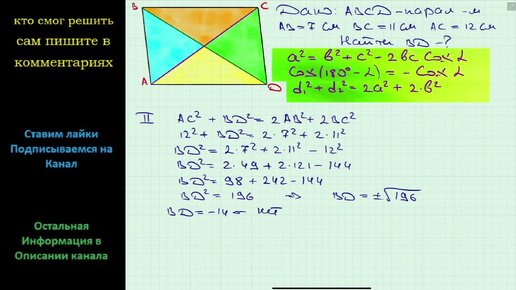 кто смог решить
сам пишите в
комментариях
Ставим лайки
Подписываемся на
Канал
Остальная
Информация в
Описании канала
B C
A D
Дано: ABCD - парал-м
AB = 7 см BC = 11 см AC = 12 см
Найти BD - ?
a² = b² + c² - 2bc Cos α
Cos(180° - α) = - Cos α
d₁² + d₂² = 2a² + 2b²
II AC² + BD² = 2AB² + 2BC²
12² + BD² = 2·7² + 2·11²
BD² = 2·7² + 2·11² - 12²
BD² = 2·49 + 2·121 - 144
BD² = 98 + 242 - 144
BD² = 196 => BD = ±√196
BD = -14 ← нет